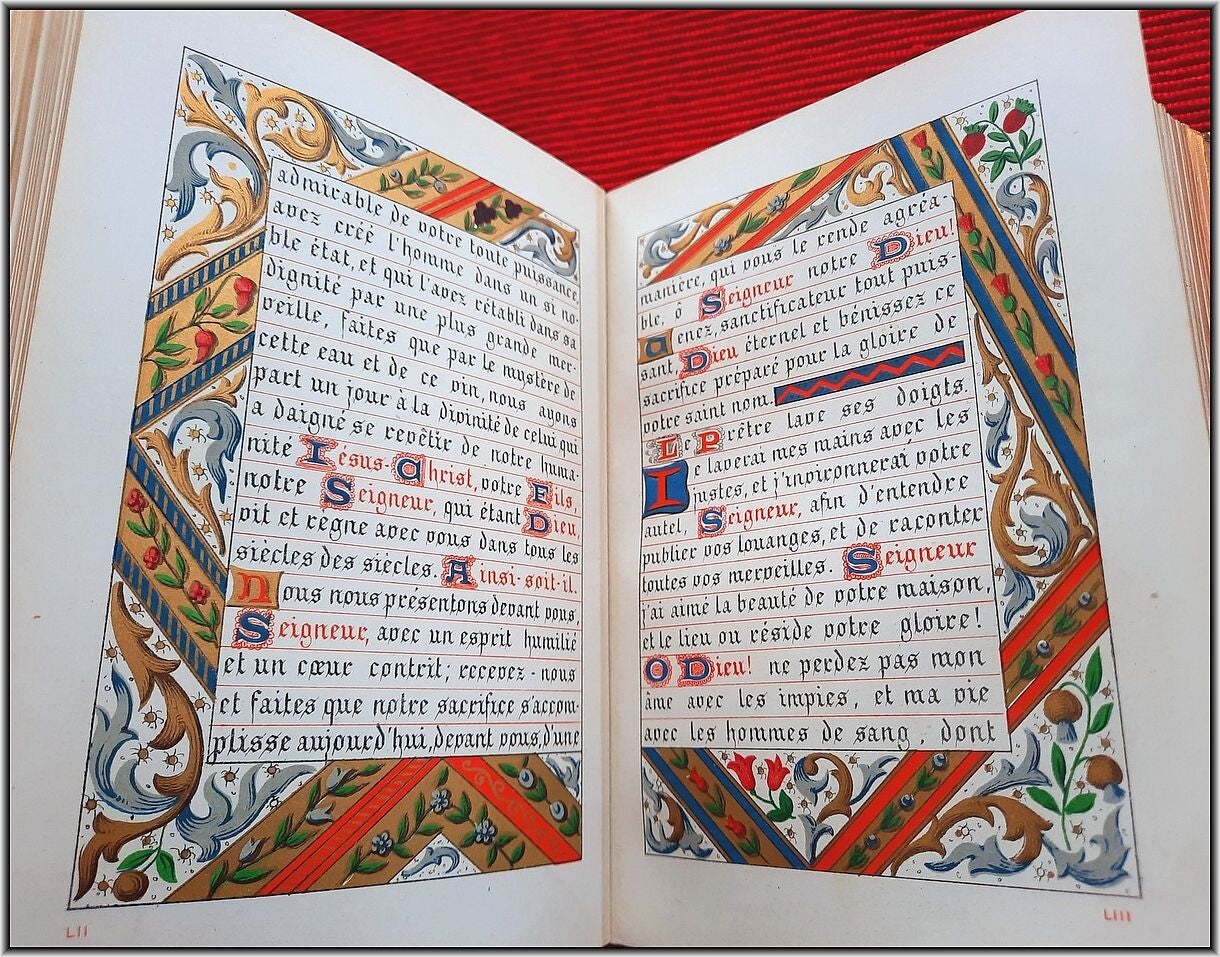 admirable de votre toute puissance,
avez créé l'homme dans un si no-
ble état, et qui l'avez rétabli dans sa
dignité par une plus grande mer-
veille, faites que par le mystère de
cette eau et de ce vin, nous ayons
part un jour à la divinité de celui qui
a daigné se revêtir de notre huma-
nité Iesus-Christ, votre Fils,
notre Seigneur, qui étant Dieu,
vit et règne avec vous dans tous les
siècles des siècles. Ainsi-soit-il.
Nous nous présentons devant vous,
Seigneur, avec un esprit humilié
et un cœur contrit; recevez-nous
et faites que notre sacrifice s'accom-
plisse aujourd'hui, devant vous, d'une
LII
manière, qui vous le rende agréa-
ble, ô Seigneur notre Dieu!
Venez, sanctificateur tout puis-
sant, Dieu éternel et bénissez ce
sacrifice préparé pour la gloire de
votre saint nom.
Le Prêtre lave ses doigts.
Ie laverai mes mains avec les
justes, et j'invironnerai votre
autel, Seigneur, afin d'entendre
publier vos louanges, et de raconter
toutes vos merveilles. Seigneur
j'ai aimé la beauté de votre maison,
et le lieu ou réside votre gloire!
O Dieu! ne perdez pas mon
âme avec les impies, et ma vie
avec les hommes de sang, dont
LIII